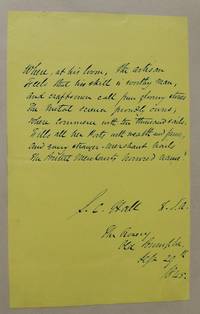 Where, at his loom, the artisan
Feels that his skill is worthy man,
and craftsmen call from glowing stores
The metal science proudly owns;
Where commerce with ten thousand sails
Fills all her Ports with wealth and fame,
and every stranger-merchant hails
The British Merchant's honored name!
S. C. Hall F.S.A.
Old Brompton
Sept 29th
1845.